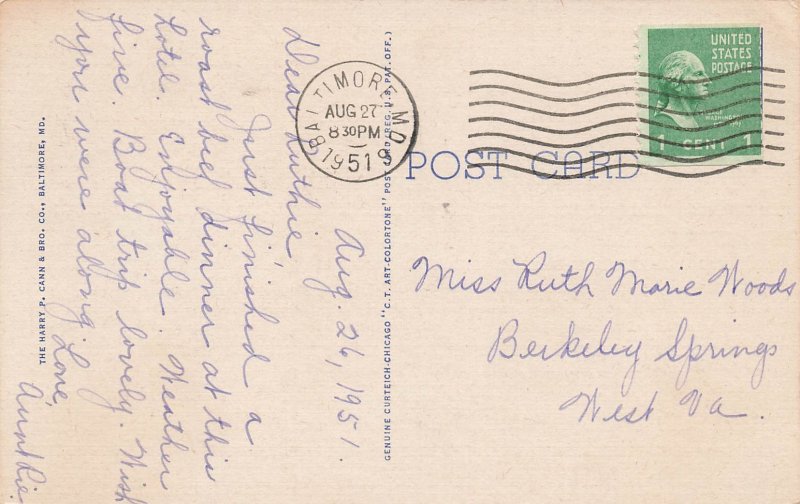 Aug. 26, 1951.
Dear Ruthie,
Just finished a
roast beef dinner at this
Hotel. Enjoyable. Weather
fine. Boat trip lovely. Wish
you were along.
Love,
THE HARRY P. CANN & BRO. CO., BALTIMORE, MD.
GENUINE CURTEICH-CHICAGO "C.T. ART-COLORTONE" POST CARD (REG. U.S. PAT. OFF.)
BALTIMORE, MD.
AUG 27
8 30 PM
1951
UNITED
STATES
POSTAGE
1 CENT 1
POST CARD
Miss Ruth Marie Woods
Berkeley Springs
West Va.